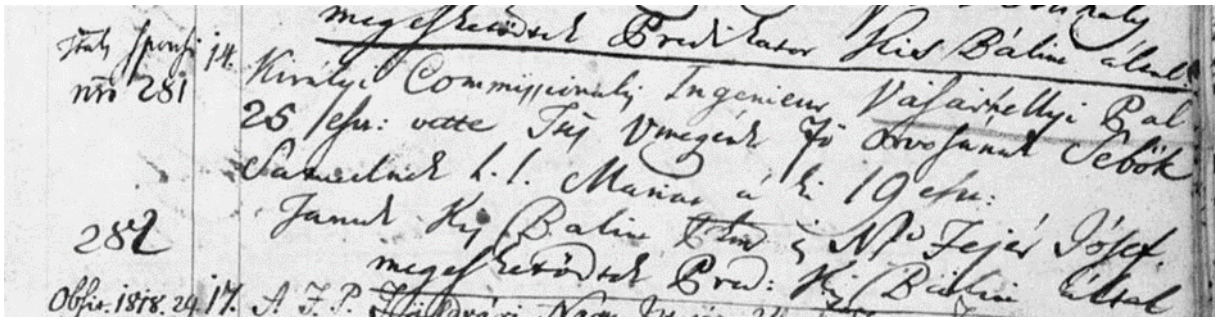 megeskettődtek Predikator Kis Bálint által.
14.
nro 281
Királyi Commissionalis Ingenieur Vásárhellyi Pal
25 esz: vette Vmegének Fő Orvosának Sebök
Samuelnek h. l. Mariát á ki 19 esz:
282
Tanuk Kis Balint és Fejér Jósef.
megeskettődtek Pred: Kis Bálint által
1818. 29. 17. A. F. P. Nagy